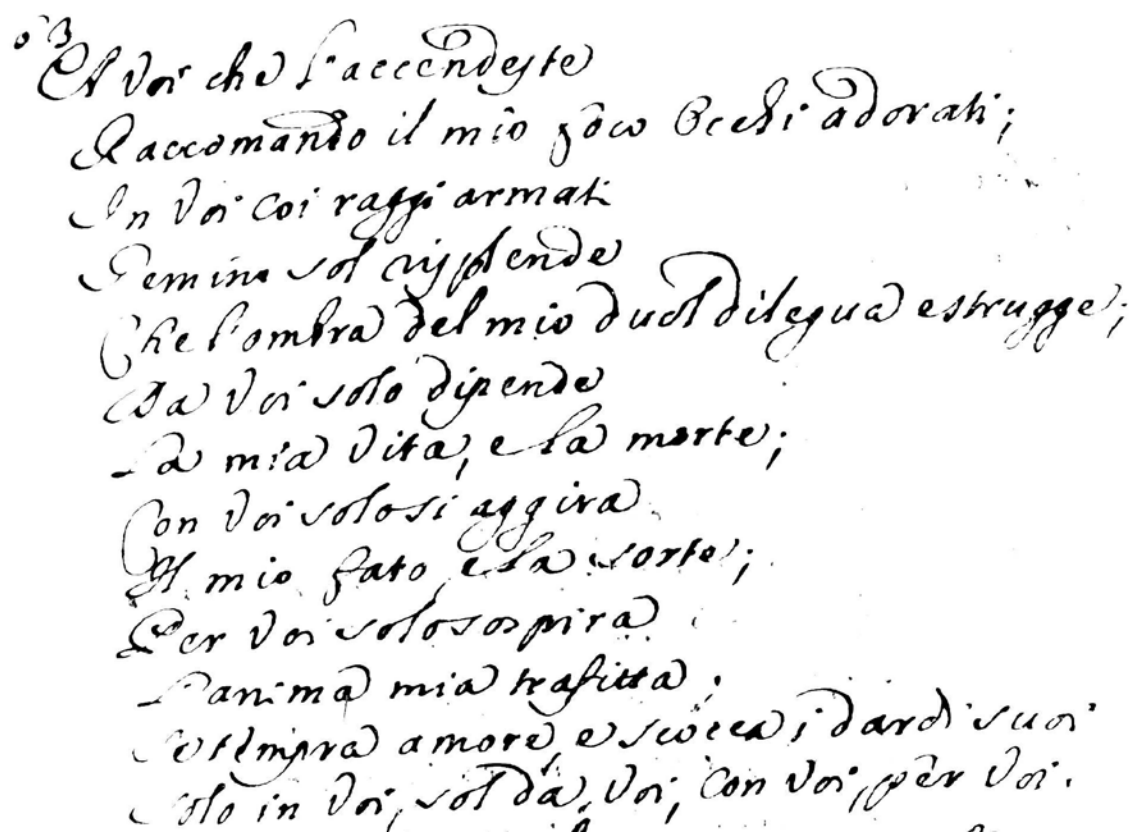 A voi che l'accendeste
Raccomando il mio foco Occhi adorati;
In voi coi raggi armati
Gemino sol risplende
Che l'ombra del mio duol dilegua e strugge;
Da voi solo dipende
La mia vita, e la morte;
Con voi solo si aggira
Il mio fato, e la sorte;
Per voi solo sospira
L'anima mia trafitta;
tempra amore, e scocca i dardi suoi
Solo in voi, sol da voi, con voi, per voi.